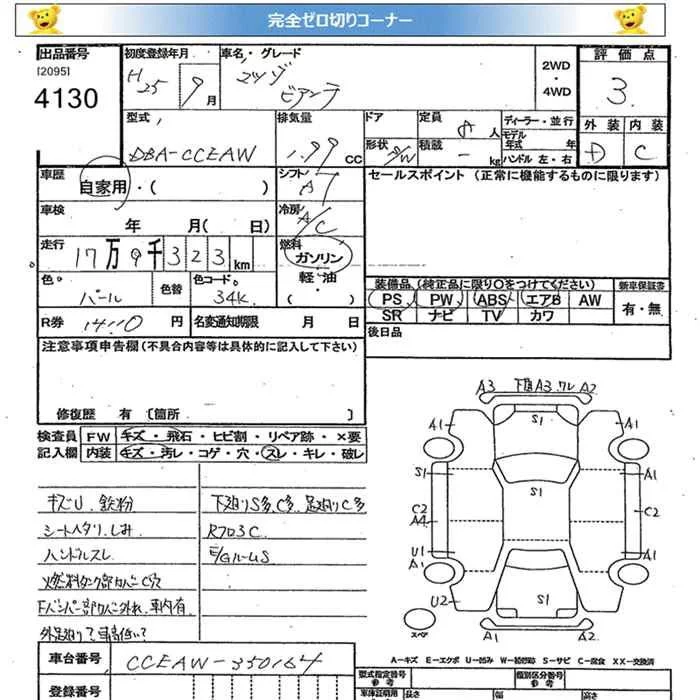 完全ゼロ切りコーナー
出品番号 初度登録年月 車名・グレード 2WD 評価点
[2095] H25年 9月 マツダ ・
4130 ビアンテ 4WD 3
型式 排気量 ドア 定員 8人 ディーラー・並行 外装 内装
DBA-CCEAW 1.99 CC 形状 S/W 積載 - kg モデル年式 年 D C
ハンドル 左・右
車歴 自家用・( ) シフト A7 セールスポイント (正常に機能するものに限ります)
車検 年 月( 日) 冷房 A/C
走行 17万9千323km 燃料 ガソリン
色 パール 色替 色コード 34K 軽・油 ( ) 装備品 (純正品に限り○をつけてください) 新車保証書
PS PW ABS エアB AW 有・無
R券 円 名変通知期限 月 日 SR ナビ TV カワ
注意事項申告欄(不具合内容等は具体的に記入して下さい) 後日品
修復歴 有 〔箇所 〕
検査員 FW キズ・飛石・ヒビ割・リペア跡・×要
記入欄 内装 キズ・汚レ・コゲ・穴・スレ・キレ・破レ
キズU 鉄粉 下廻りS多、C多、足廻りC多
シートヘタリ、しみ R703C
ハンドルスレ E/GルームS
燃料タンク部カバーC穴
Fバンパー部カバー外れ、車内有
外足廻りで車高低い
車台番号 CCEAW-350164
登録番号
A3 下廻A3.ワレ A2
S1
A1 A1
S1 S1 A1
C2 C2
A4
U1 A1
A1
U2 S1
スペア A1 A2
A-キズ E-エクボ U-凹み W-補修跡 S-サビ C-腐食 XX-交換済
型式指定番号 類別区分番号
参考 参考
長さ